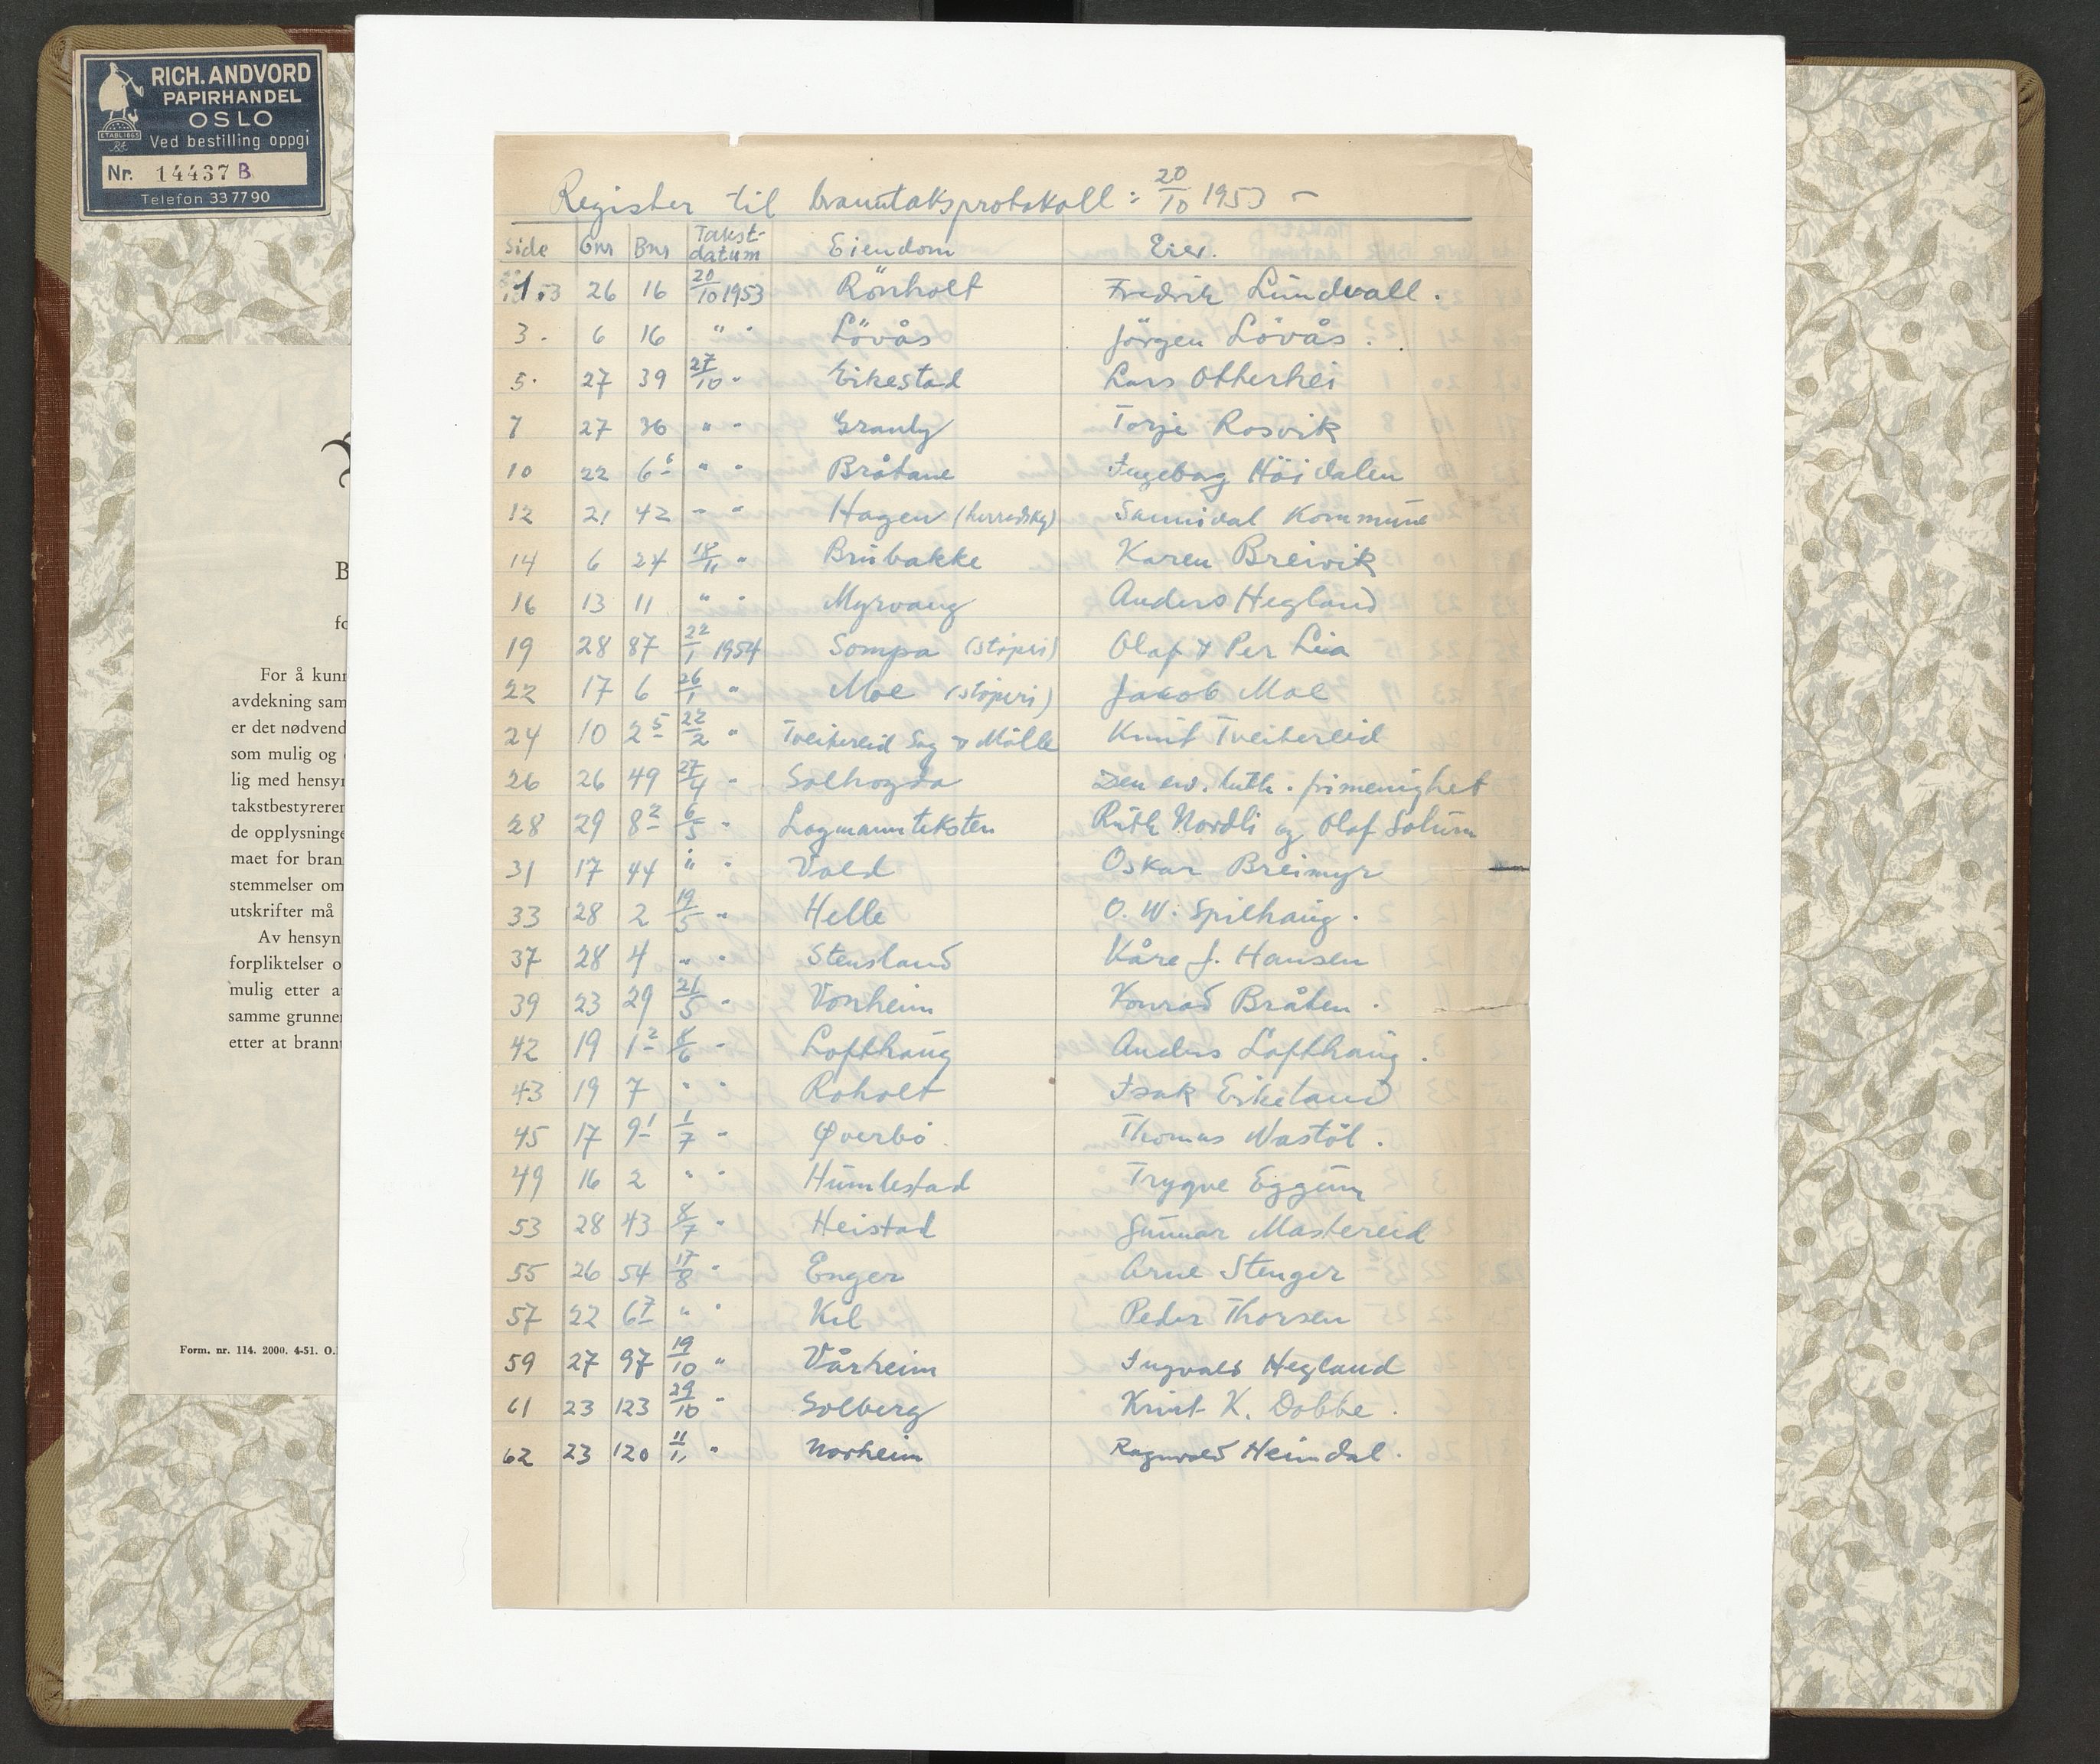 RICH. ANDVORD
PAPIRHANDEL
OSLO
ETABL 1865
Ved bestilling oppgi
Nr. 14437 B
Telefon 337790
B
fo
For å kunn
avdekning sam
er det nødvend
som mulig og
lig med hensyn
takstbestyrerer
de opplysninge
maet for bran
stemmelser om
utskrifter må
Av hensyn
forpliktelser o
mulig etter a
samme grunner
etter at brann
Form. nr. 114. 2000. 4-51. O.
Register til branntaksprotokoll : 20/10 1953 –
Side Gnr Bnr Takst-datum Eiendom Eier.
1. 26 16 20/10 1953 Rönholt Fredrik Lundvall .
3. 6 16 " " Lövås Jörgen Lövås .
5. 27 39 27/10 " Eikestad Lars Otterhei
7 27 36 " " Granly Torje Rosvik
10 22 6 6 " " Bråtane Ingeborg Höidalen
12 21 42 " " Hagen (herredskg) Sannidal Kommune
14 6 24 18/11 " Brubakke Karen Breivik
16 13 11 " " Myrvang Anders Hegland
19 28 87 22/1 1954 Sompa (støperi) Olaf & Per Lia
22 17 6 26/1 " Moe (støperi) Jakob Moe
24 10 2 5 22/2 " Tveitereid Sag & Mölle Knut Tveitereid
26 26 49 27/4 " Solhögda Den ev. luth. frimenighet
28 29 8 2 6/5 " Lagmannteksten Ruth Nordli og Olaf Solum
31 17 44 " " Vold Oskar Breimyr
33 28 2 19/5 " Helle O. W. Spilhaug .
37 28 4 " " Stensland Kåre J. Hansen
39 23 29 21/5 " Vonheim Konrad Bråten .
42 19 1 2 8/6 " Lofthaug Anders Lofthaug .
43 19 7 " " Roholt Isak Eikeland
45 17 9 1 1/7 " Øverbö Thomas Wastöl .
49 16 2 " " Humlestad Trygve Eggum
53 28 43 8/7 " Heistad Gunnar Mastereid
55 26 54 17/8 " Enger Arne Stenger
57 22 6 7 " " Kil Peder Thorsen
59 27 97 19/10 " Vårheim Ingvald Hegland
61 23 123 29/10 " Solberg Knut K. Dobbe .
62 23 120 11/11 " Norheim Ragnvald Heimdal .